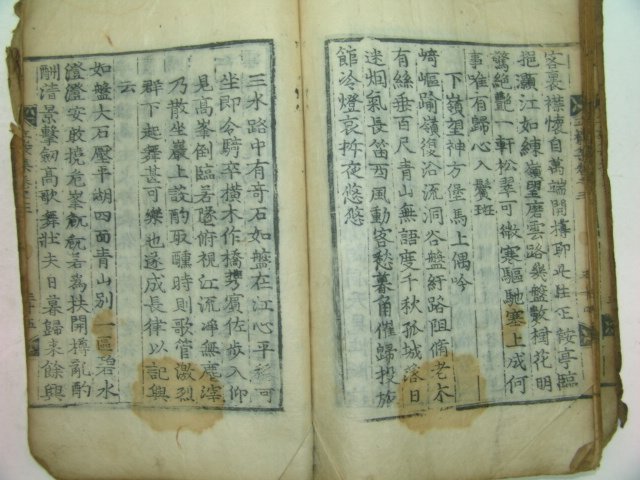 客裏襟懷自萬端開樽聊
鞍亭臨
挹灝江如練嶺望磨雲路樂盤數樹花明
驚絶艶一軒松翠可微寒驅馳塞上成何
事唯有歸心入鬢班
下嶺望神方堡馬上偶吟
崎嶇踰嶺復浴流洞谷盤紆路阻脩老木
有絲垂百尺青山無語度千秋孤城落日
迷烟氣長笛西風動客愁暮角催歸投旅
館冷燈哀柝夜悠悠
三水路中有奇石如盤在江心平穩可
坐即令騎卒橫木作橋與賓佐步入仰
見高峯倒臨若墜俯視江流淨無塵滓
乃散坐巖上設酌取醺時則歌管激烈
群下起舞甚可樂也遂成長律以記興
云
如盤大石壓平湖四面青山別一區碧水
澄澄安敢撓危峯屼屼若爲扶開樽亂酌
酬淸景擊劒高歌舞壯夫日暮歸來餘興